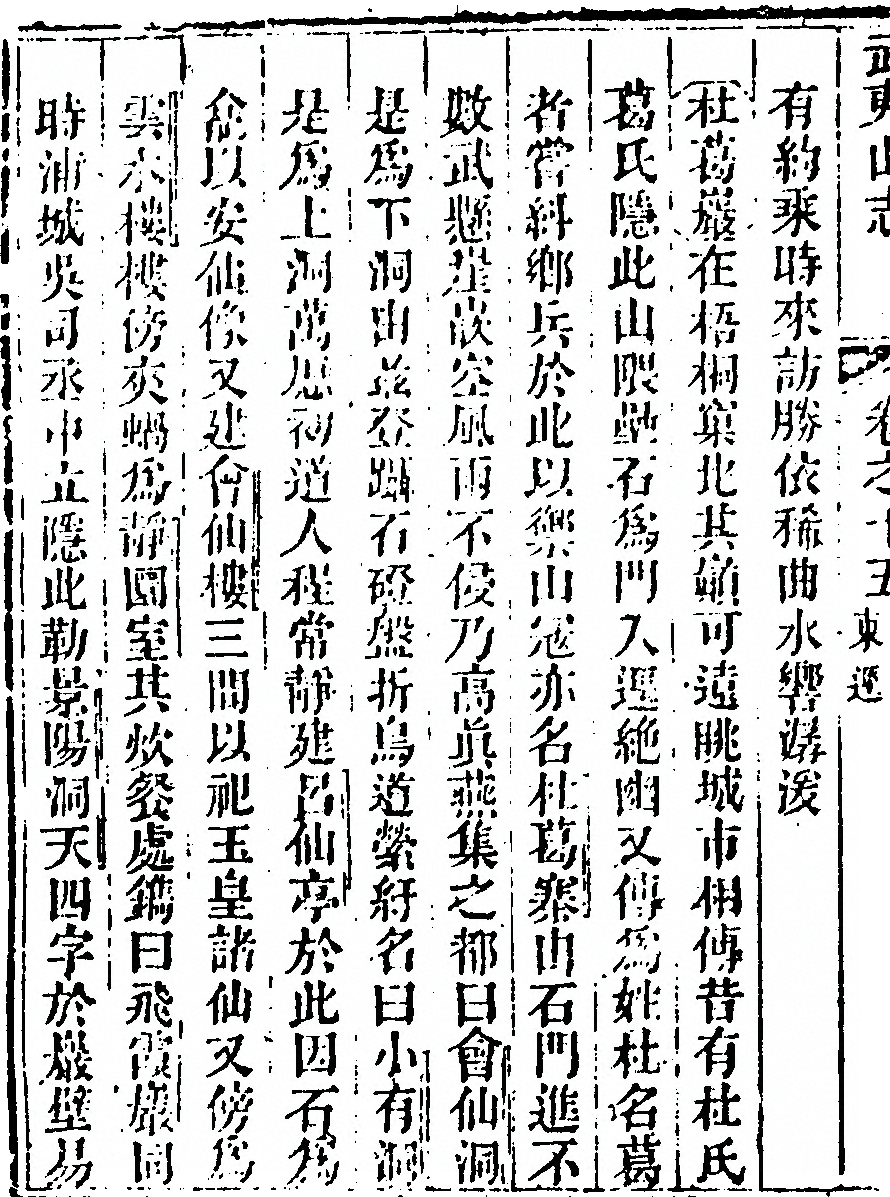 武夷山志 卷之十五 東遷
有約乘時來訪勝依稀曲水響潺湲
杜葛巖在梧桐窠北其巔可遠眺城市相傳昔有杜氏
葛氏隱此山隈壘石爲門入逕絶幽又傳爲姓杜名葛
者嘗糾鄉兵於此以禦山寇亦名杜葛寨由石門進不
數武懸崖嵌空風雨不侵乃高眞燕集之都曰會仙洞
是爲下洞由並登躡石磴盤折鳥道縈紆名曰小有洞
是爲上洞萬思初道人程常靜建呂仙亭於此因石爲
龕以安仙像又建會仙樓三間以祀玉皇諸仙又傍爲
雲水樓樓傍夾蝸爲靜圜室其炊餐處鐫曰飛霞巖同
時浦城吳司丞中立隱此勒景陽洞天四字於巖壁易